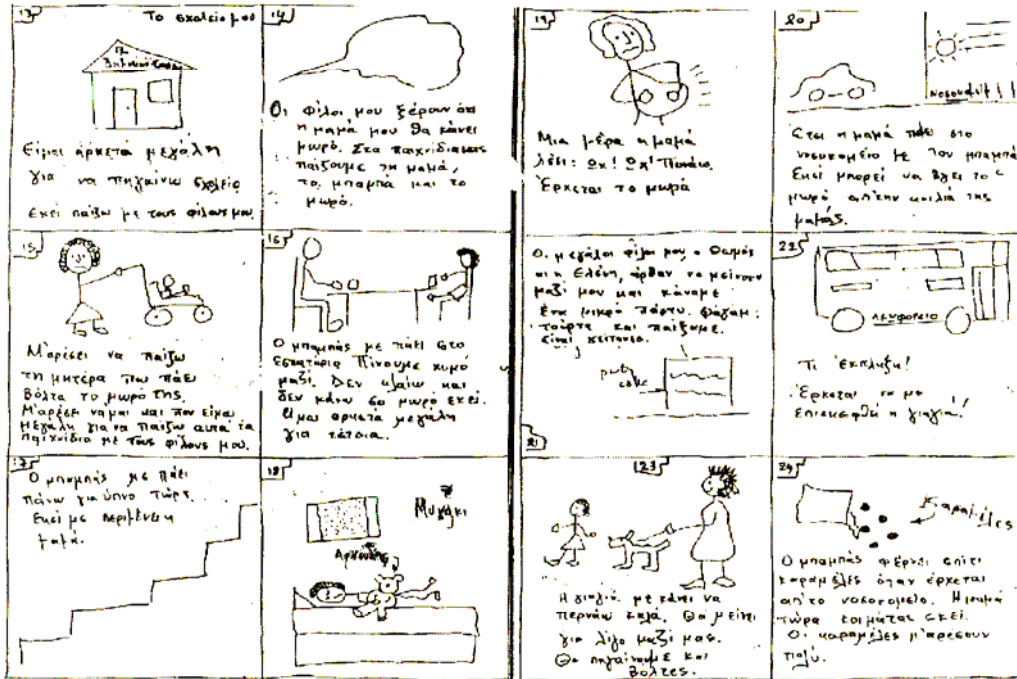 13
Το σχολείο μου
Είμαι αρκετά μεγάλη
για να πηγαίνω σχολείο
Εκεί παίζω με τους φίλους μου.
14
Οι φίλοι μου ξέραν ότι
η μαμά μου θα κάνει
μωρό. Στα παιχνίδια μας
παίζουμε τη μαμά,
το μπαμπά και το
μωρό.
15
Μ'αρέσει να παίζω
τη μητέρα που πάει
βόλτα το μωρό της.
Μ'αρέσει νάμαι και που είμαι
μεγάλη για να παίζω αυτά τα
παιχνίδια με τους φίλους μου.
16
Ο μπαμπάς με πάει στο
εστιατόριο Πίνουμε χυμό
μαζί. Δεν κλαίω και
δεν κάνω σα μωρό εκεί.
Είμαι αρκετά μεγάλη
για τέτοια.
17
Ο μπαμπάς με πάει
πάνω για ύπνο τώρα.
Εκεί με περιμένει η
μαμά.
18
Αρκούδος
19
Μια μέρα η μαμά
λέει: Οχ! Οχ! Πονάω.
Έρχεται το μωρό
20
Έτσι η μαμά πάει στο
νοσοκομείο με τον μπαμπά
Εκεί μπορεί να βγει το
μωρό απ'την κοιλιά της
μαμάς.
Οι μεγάλοι φίλοι μου, ο Θωμάς
κι η Ελένη, ήρθαν να μείνουν
μαζί μου και κάναμε
ένα μικρό πάρτυ. Φάγαμε
τούρτα και παίξαμε.
Είναι γείτονες.
21
22
ΛΕΩΦΟΡΕΙΟ
Τι έκπληξη!
Έρχεται να με
επισκεφθεί η γιαγιά!
23
Η γιαγιά με κάνει να
περνάω καλά. Θα μείνει
για λίγο μαζί μας.
Θα πηγαίνουμε και
βόλτες.
24
Καραμέλες
Ο μπαμπάς φέρνει σπίτι
καραμέλες όταν έρχεται
απ'το νοσοκομείο. Η μαμά
τώρα κοιμάται εκεί.
Οι καραμέλες μ'αρέσουν
πολύ.